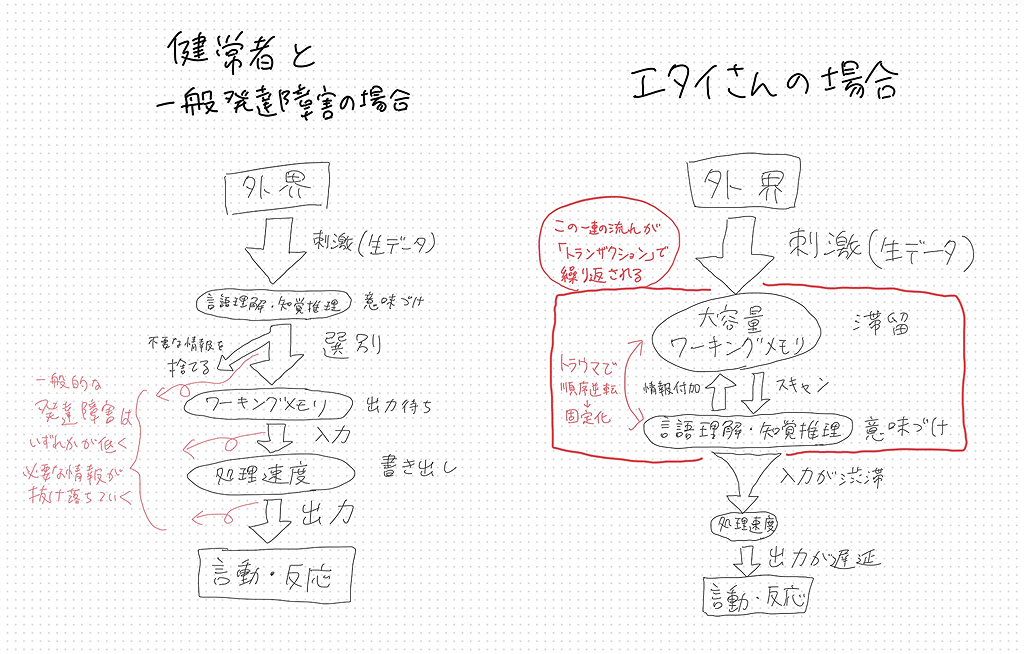 健常者と
一般発達障害の場合
外界
刺激(生データ)
言語理解・知覚推理
意味づけ
不要な情報を
捨てる
選別
ワーキングメモリ
出力待ち
入力
処理速度
書き出し
出力
言動・反応
一般的な
発達障害は
いずれかが低く
必要な情報が
抜け落ちていく
エタイさんの場合
外界
刺激(生データ)
この一連の流れが
「トランザクション」で
繰り返される
大容量
ワーキングメモリ
滞留
トラウマで
順序逆転
↓
固定化
情報付加
スキャン
言語理解・知覚推理
意味づけ
入力が渋滞
処理速度
出力が遅延
言動・反応